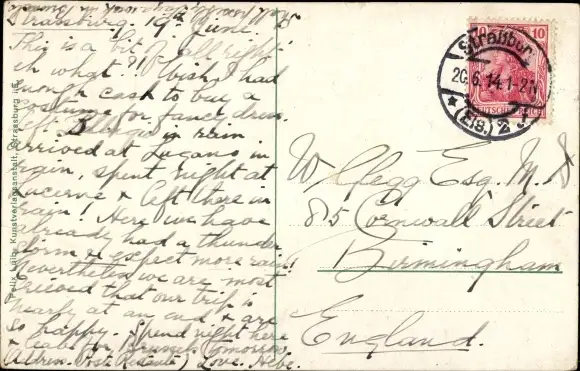 Strassburg. 19th June.
This is a bit of all right
eh what?!! Wish I had
enough cash to buy a
costume for fancy dress.
Left in rain
arrived at Lugano in
rain, spent night at
Lucerne & left there in
rain! Here we have
already had a thunder
storm & expect more rain!
Nevertheless we are most
that our trip is
nearly at an end & are
so happy. Spend night here
& leave for Brussels tomorrow
(Address. Poste Restante) Love.
Kunstverlagsanstalt, Strassburg i/E.
10
DEUTSCHES REICH
Straßburg
20.6.14.1-2N
* (Els.) 2
W Clegg Esq. M.D
85 Cornwall Street
Birmingham
England.